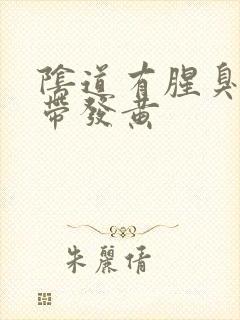 陰道有腥臭
帶發黃
朱麗倩